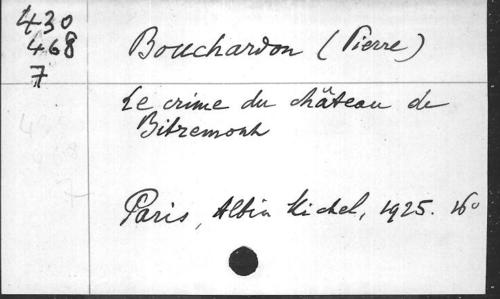 430
468
7
Bouchardon (Pierre)
Le crime du château de
Bitremont
Paris, Albin Michel, 1925. 16º